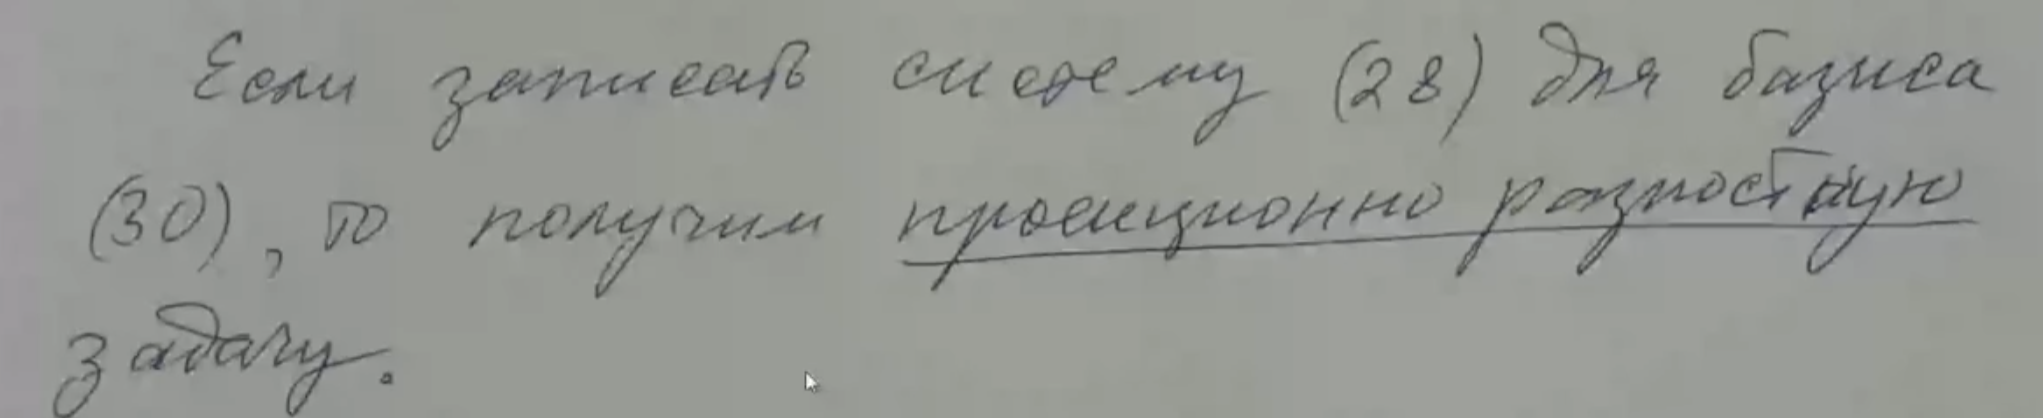 Если записать систему (28) для базиса
(30), то получим проекционно разностную
задачу.